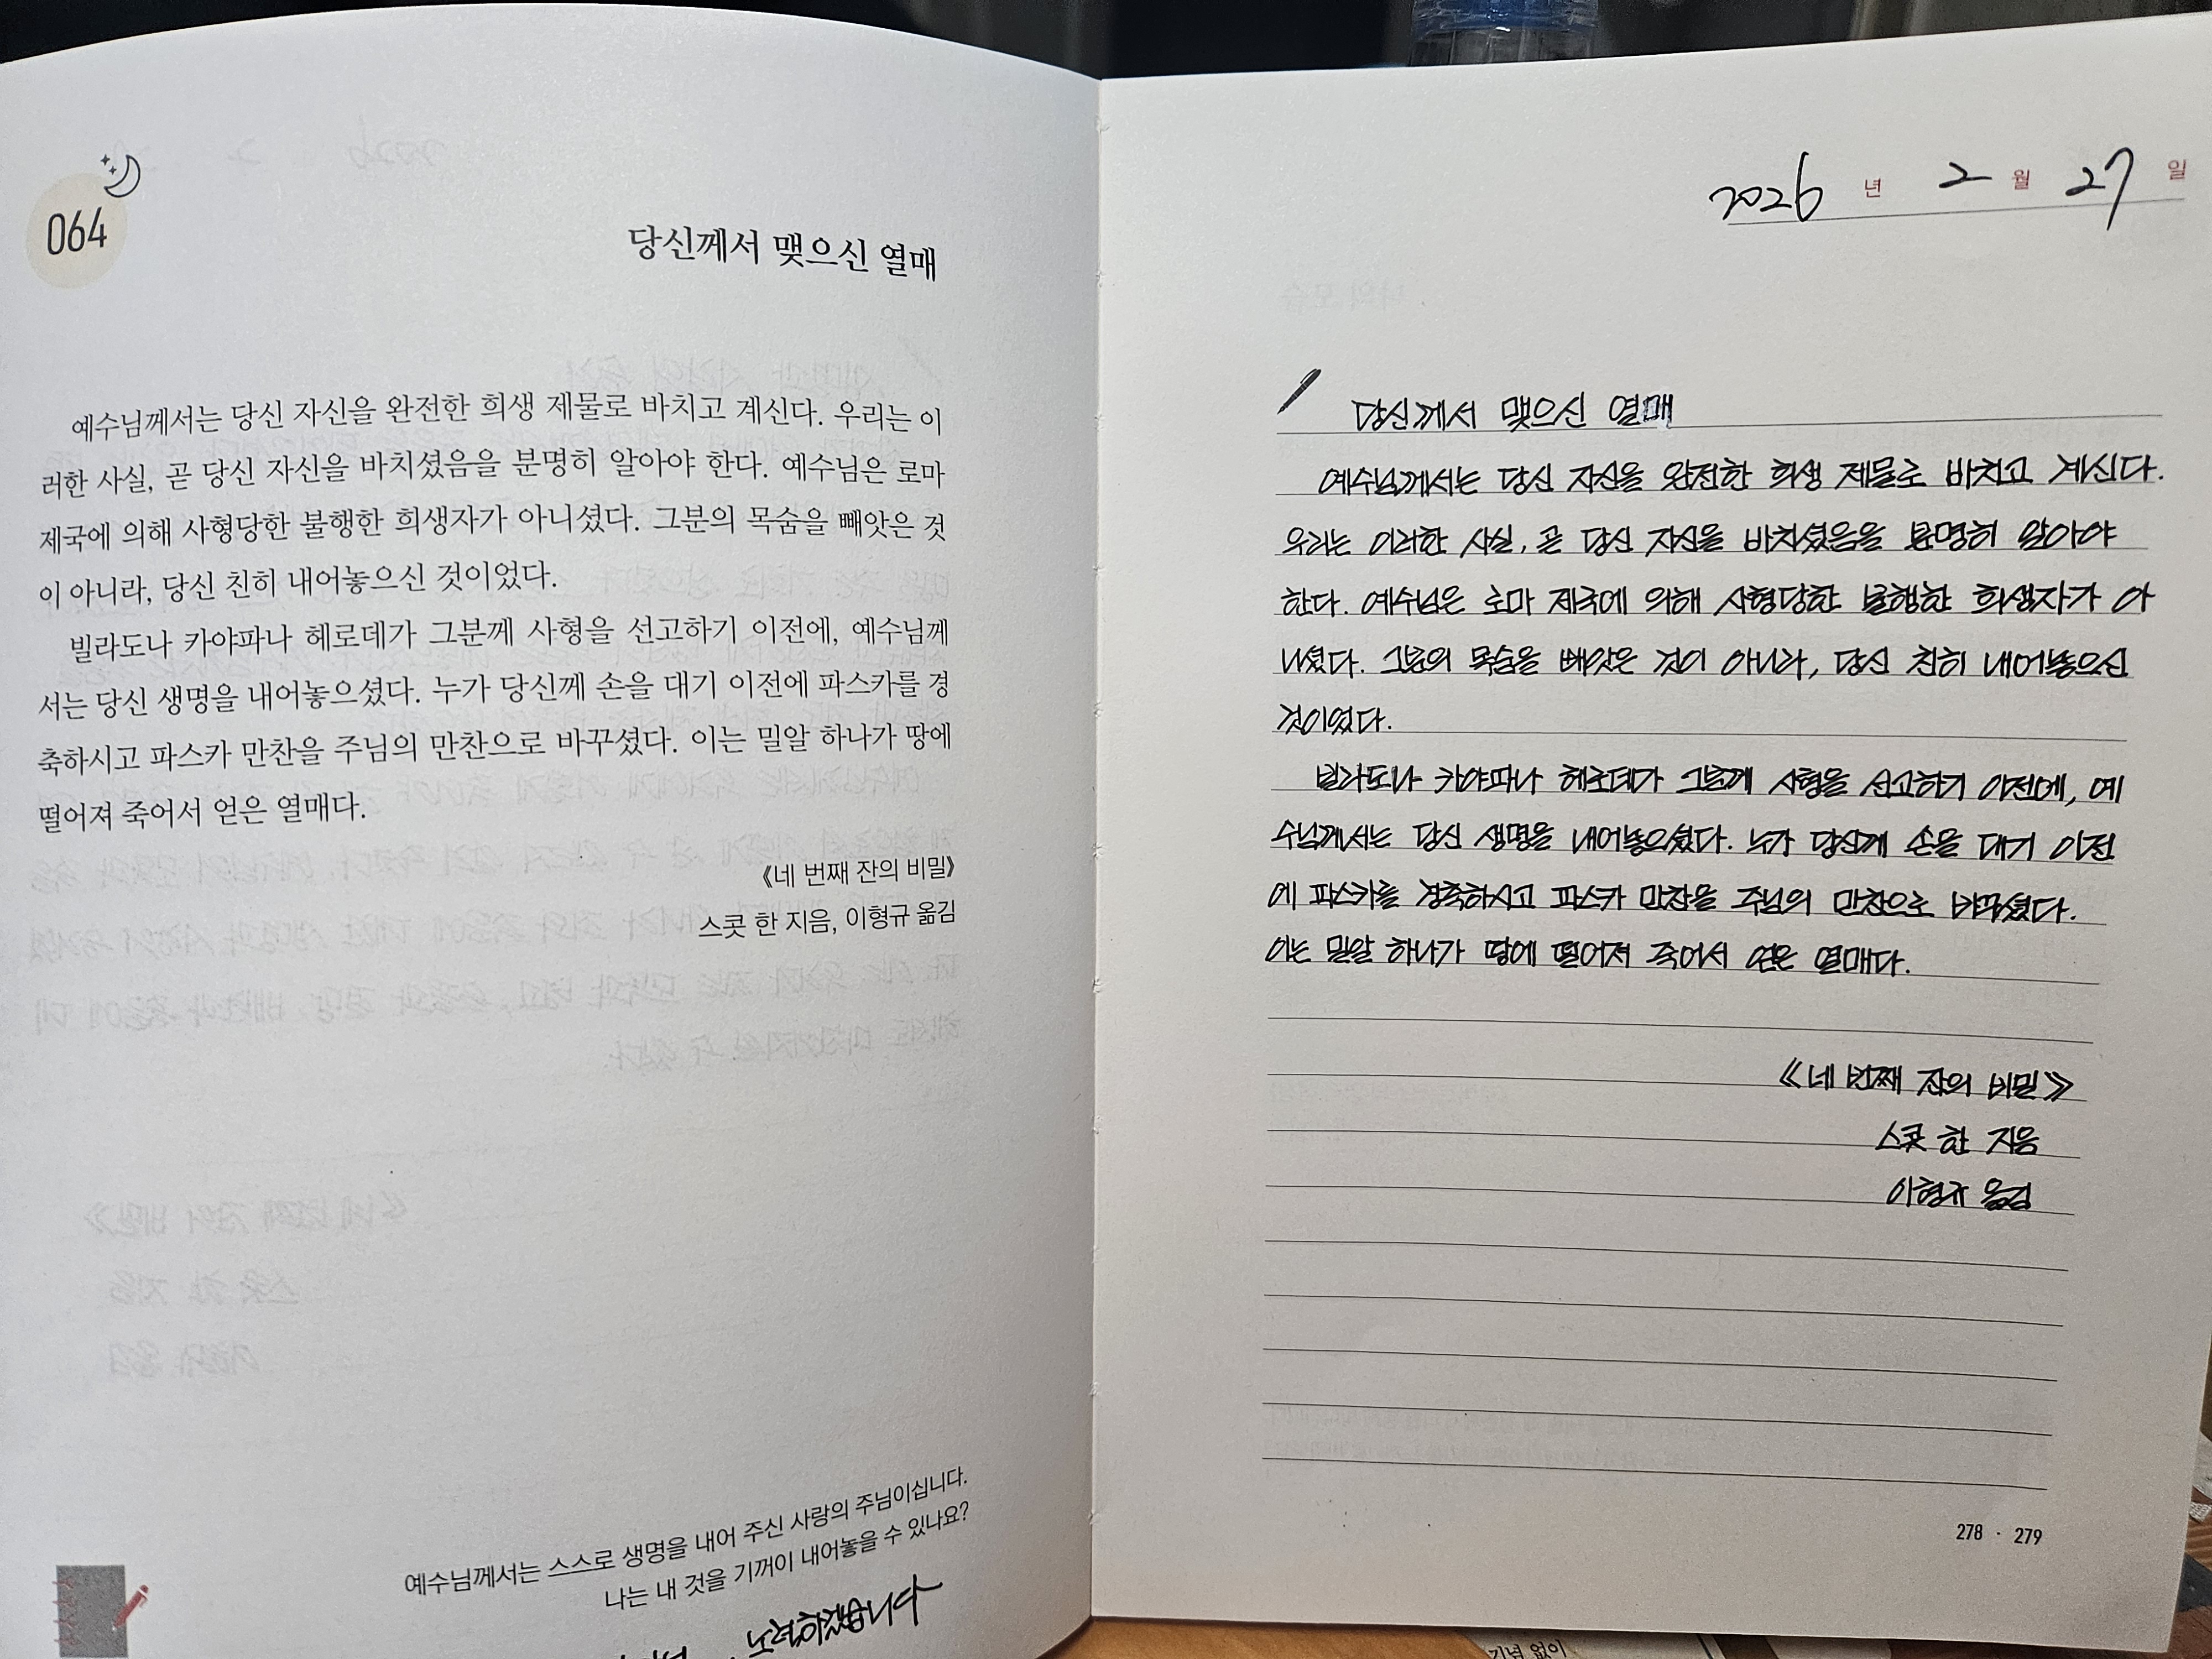 064
당신께서 맺으신 열매
예수님께서는 당신 자신을 완전한 희생 제물로 바치고 계신다. 우리는 이
러한 사실, 곧 당신 자신을 바치셨음을 분명히 알아야 한다. 예수님은 로마
제국에 의해 사형당한 불행한 희생자가 아니셨다. 그분의 목숨을 빼앗은 것
이 아니라, 당신 친히 내어놓으신 것이었다.
빌라도나 카야파나 헤로데가 그분께 사형을 선고하기 이전에, 예수님께
서는 당신 생명을 내어놓으셨다. 누가 당신께 손을 대기 이전에 파스카를 경
축하시고 파스카 만찬을 주님의 만찬으로 바꾸셨다. 이는 밀알 하나가 땅에
떨어져 죽어서 얻은 열매다.
《네 번째 잔의 비밀》
스콧 한 지음, 이형규 옮김
예수님께서는 스스로 생명을 내어 주신 사랑의 주님이십니다.
나는 내 것을 기꺼이 내어놓을 수 있나요?
노력하겠습니다
2026 년 2 월 27 일
당신께서 맺으신 열매
예수님께서는 당신 자신을 완전한 희생 제물로 바치고 계신다.
우리는 이러한 사실, 곧 당신 자신을 바치셨음을 분명히 알아야
한다. 예수님은 로마 제국에 의해 사형당한 불행한 희생자가 아
니셨다. 그분의 목숨을 빼앗은 것이 아니라, 당신 친히 내어놓으신
것이었다.
빌라도나 카야파나 헤로데가 그분께 사형을 선고하기 이전에, 예
수님께서는 당신 생명을 내어놓으셨다. 누가 당신께 손을 대기 이전
에 파스카를 경축하시고 파스카 만찬을 주님의 만찬으로 바꾸셨다.
이는 밀알 하나가 땅에 떨어져 죽어서 얻은 열매다.
《네 번째 잔의 비밀》
스콧 한 지음
이형규 옮김
278 · 279